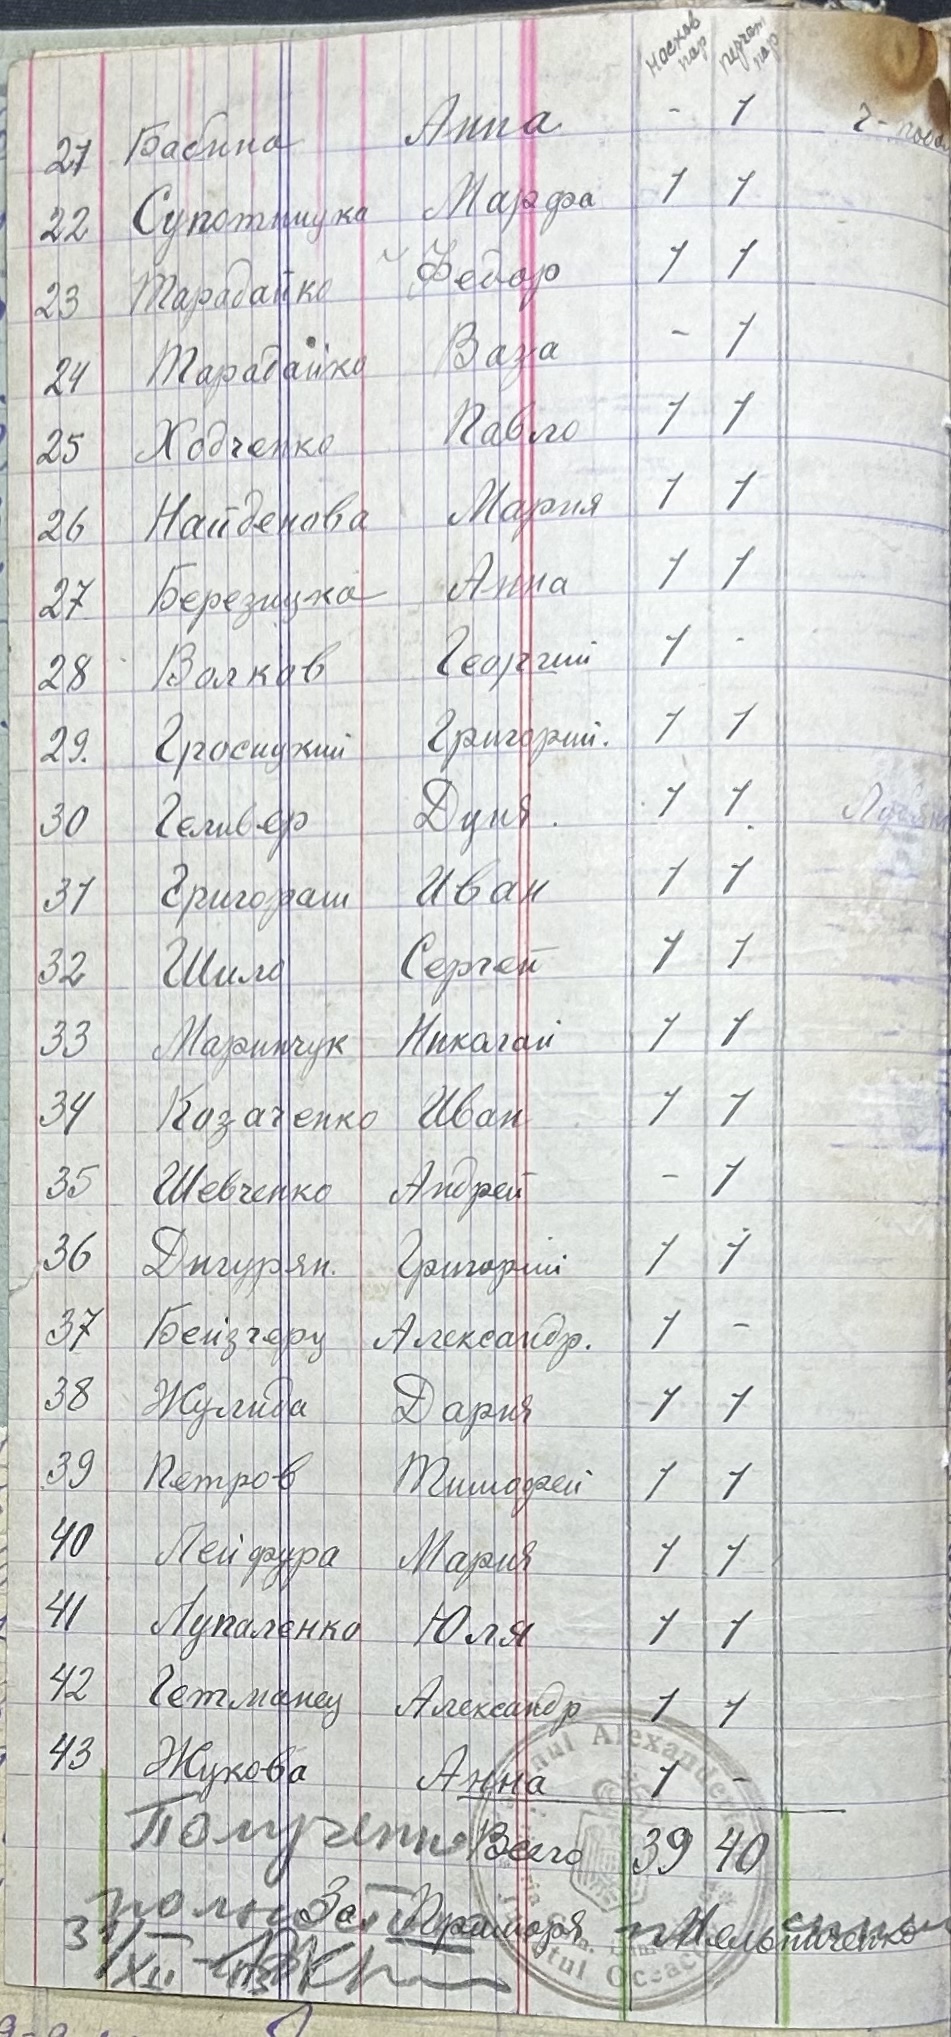 Носков пар Перчат пар
21 Бабина Анна - 1
22 Супотницка Марфа 1 1
23 Тарабайко Федор 1 1
24 Тарабайко Ваза - 1
25 Ходченко Павло 1 1
26 Найденова Мария 1 1
27 Березицка Анна 1 1
28 Волков Георгий 1 -
29. Гросицкий Григорий. 1 1
30 Геливер Дуня. 1 1
31 Григораш Иван 1 1
32 Шило Сергей 1 1
33 Маринчук Николай 1 1
34 Казаченко Иван 1 1
35 Шевченко Андрей - 1
36 Дигурян. Григорий 1 1
37 Бейзгеру Александр. 1 -
38 Жулида Дария 1 1
39 Петров Тимофей 1 1
40 Лейфура Мария 1 1
41 Лупаленко Юля 1 1
42 Гетманец Александр 1 1
43 Жукова Анна 1 -
Получено Всего 39 40
За Примаря Мельниченко
31/XII